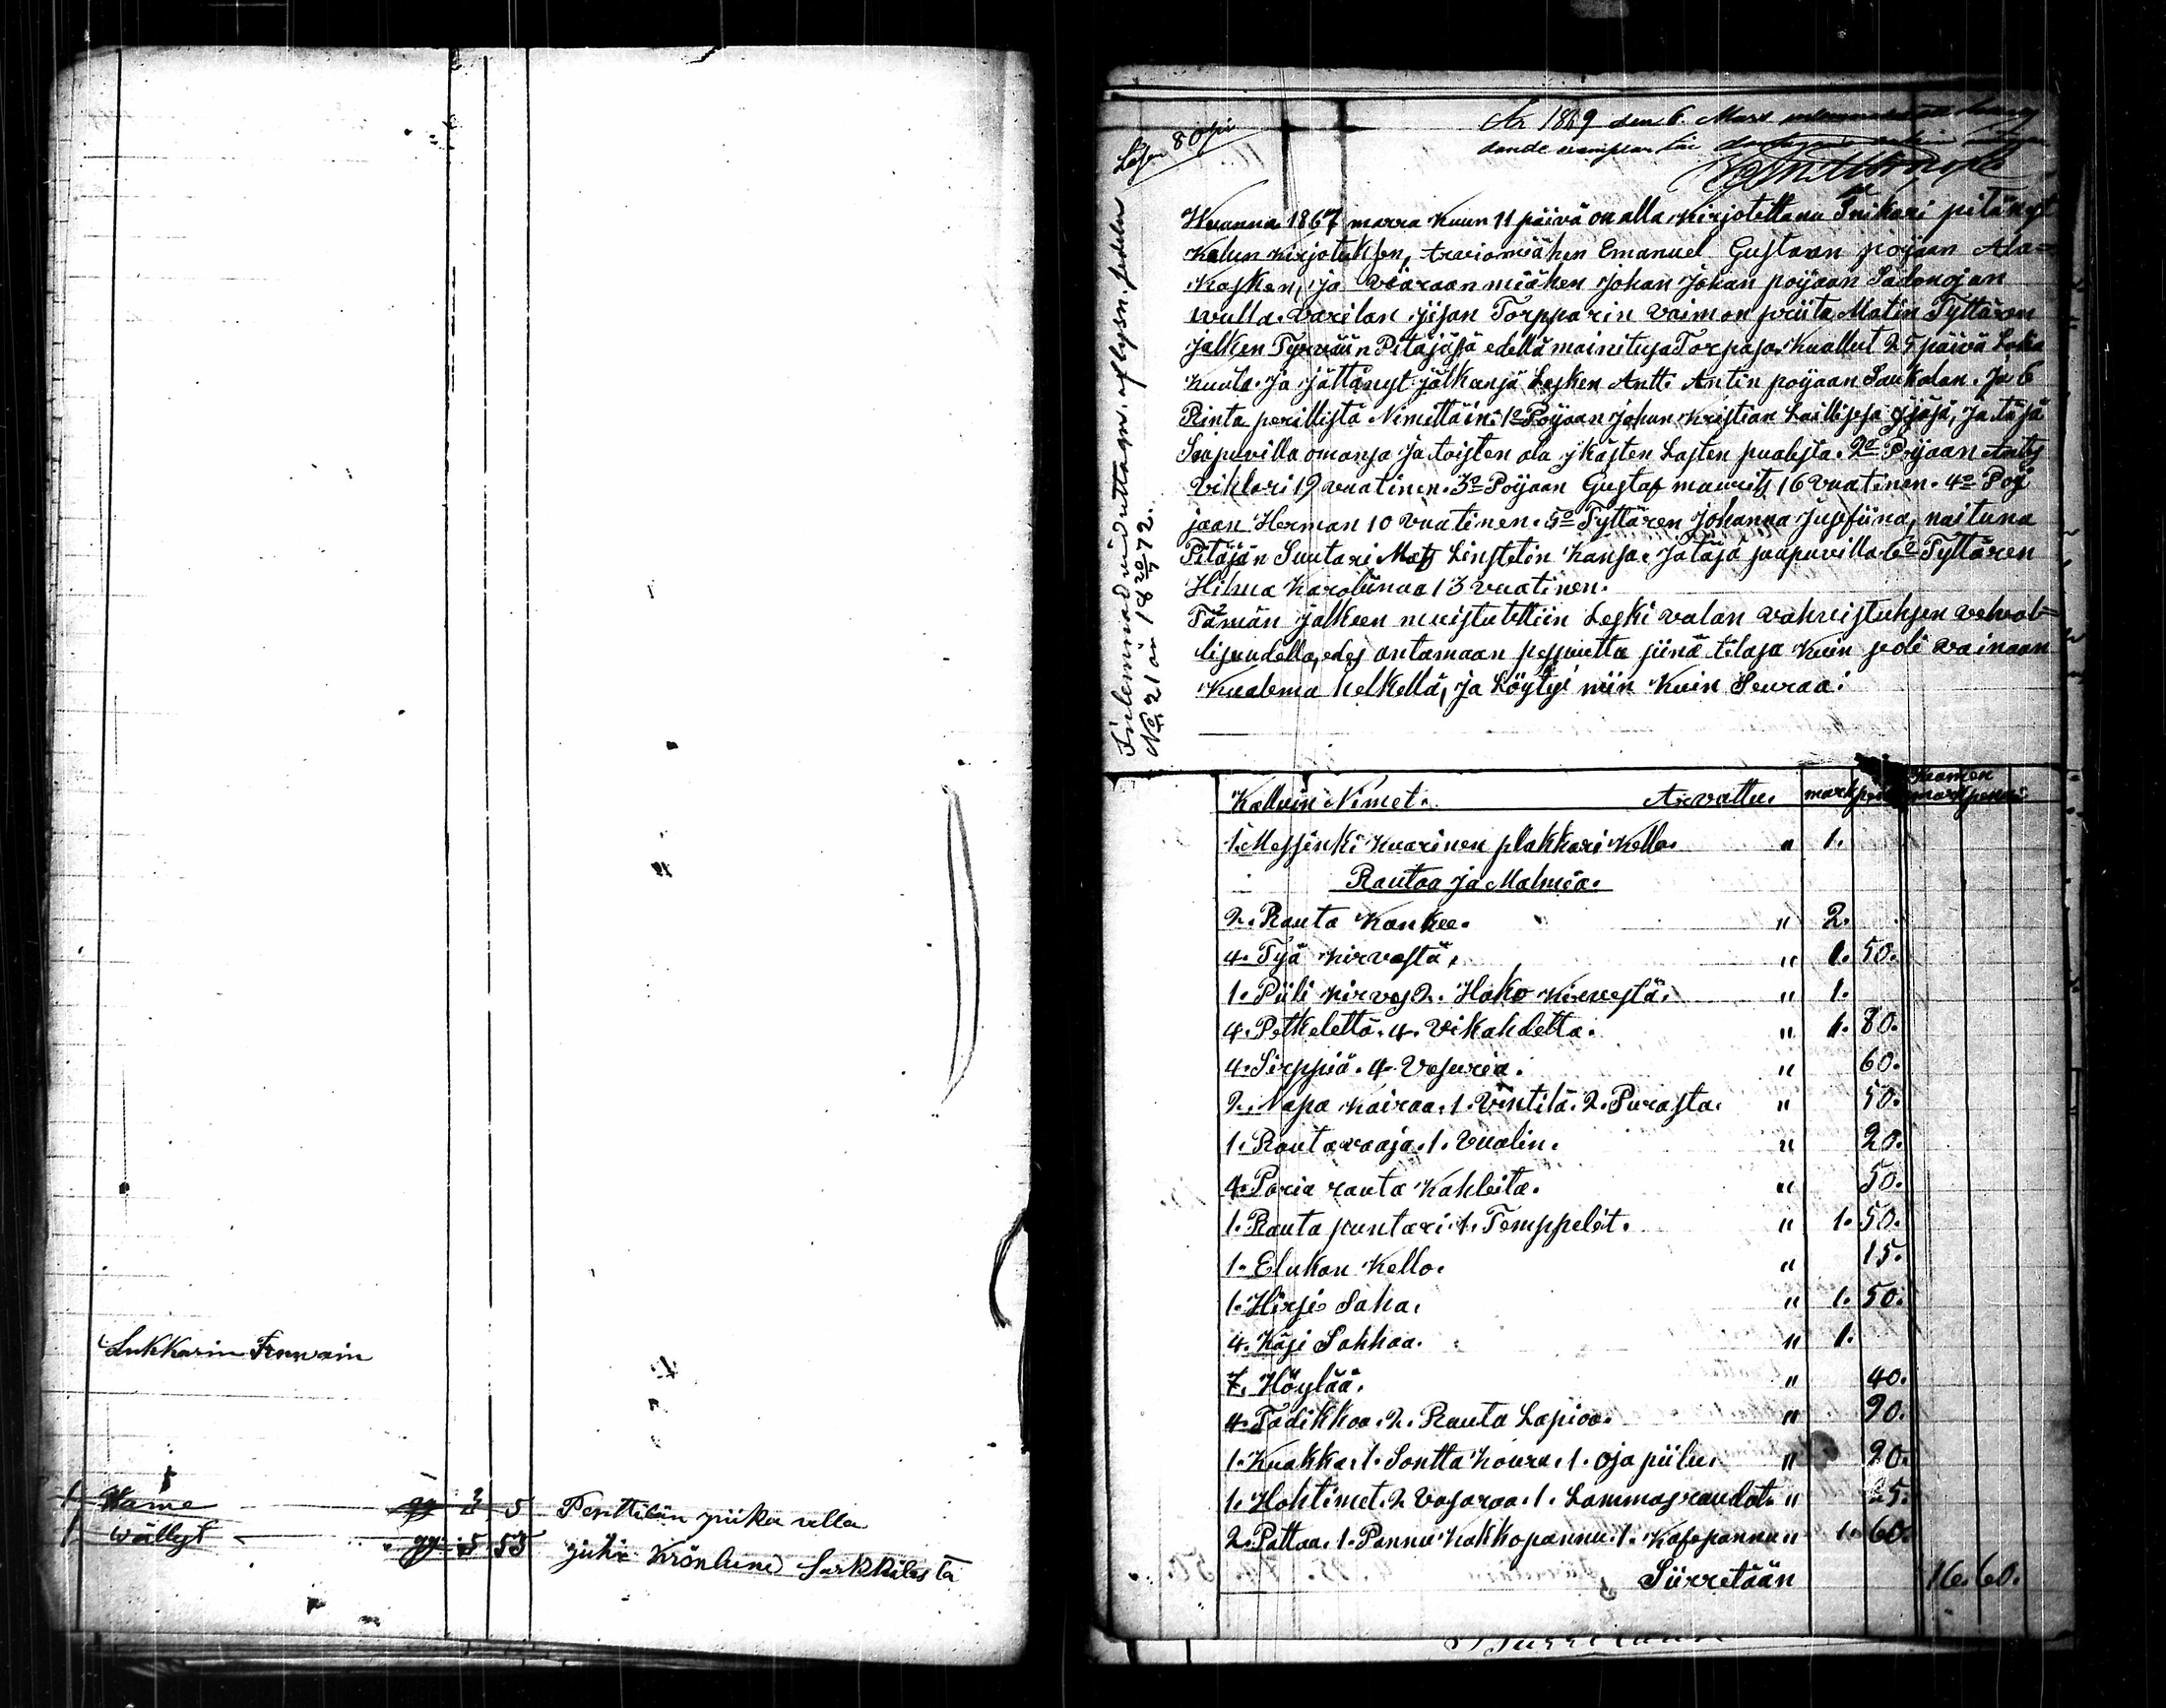 Lukkarin
1 Hame 5 Penttilän piika
1 wällyt 5 53 juha Krönlund Sarkkilasta
År 1869 den 6 Mars
dande exemplar
Wuanna 1867 marra kuun 11 päivä on alla kirjotettanu pitänyt
Kalun kirjotuksen, Arviomiähen Emanuel Gustavan poijaan Ala=
kosken, ja Vääraan miähen Johan Johan poijaan Sadonojan
wulla. Varilan jijan Torpparin Vaimon priita Matin Tyttären
jälken Tyrvään Pitäjäsä edellä mainitusa Torpasa. Kuallut 25 päivä Loka
kuuta. ja jättänyt jälkensä Lesken Antti Antin poijaan Saukolan. Ja 6
Rinta perillistä Nimittäin: 1o Poijaan Johan Kristian Laillisesa ijäsä, ja täsä
Saapuvilla omansa ja toisten ala ikästen Lasten pualesta. 2o Poijaan Antts
Vihlari 19 vuatinen. 3o Poijaan Gustaf maurits 16 Vuatinen. 4o Poi
jaan Herman 10 Vuatinen. 5o Tyttären Johanna Jusefiina, naituna
Pitäjän Suutari Mats Linstetin kansa. Ja täsä saapuvilla 6o Tyttären
Hilma karoliinaa 13 vuatinen.
Tämän jälkeen muistutettiin Leski valan vahvistuksen velvol=
lisuudella, edes antamaan pesuutta siinä tilasa kuin se oli vainaan
kualema hetkellä, ja Löytyi niin kuin Seuraa:
No 21 an 18 20/7 72.
Kalluin Nimet. Arvattu. mark
mark penni
1. Messinki kuarinen plakkari kello. " 1.
Rautaa ja Malmia.
2. Rauta Kankee. " 2.
4. Työ kirvestä. " 1. 50.
1. Piili kirves 2. Hako kirvestä. " 1.
4. Petkelettä. 4. Vikahdetta. " 1. 80.
4. Sirppiä. 4. Vesuria. " 60.
2. Napa kairaa. 1. Vintilä. 2. Purasta. " 50.
1. Rautavaaja. 1. Vualin. " 20.
4. Paria rauta kahleita. " 50.
1. Rauta puntari. 1. Temppelit. " 1. 50.
1. Elukan kello. " 15.
1. Hirsi Saha. " 1. 50.
4. Käsi Sahhaa. " 1.
7. Höylää. " 40.
4. Tadikkoa. 2. Rauta Lapioo. " 90.
1. Kuakka. 1. Sontta koura. 1. oja piilu. " 90.
1. Hohtimet. 2 Vasaraa. 1. Lammasraudat. " 25.
2. Pattaa. 1. Pannu kakkopannu. 1. Kafepannu " 1. 60.
Siirretään 16. 60.